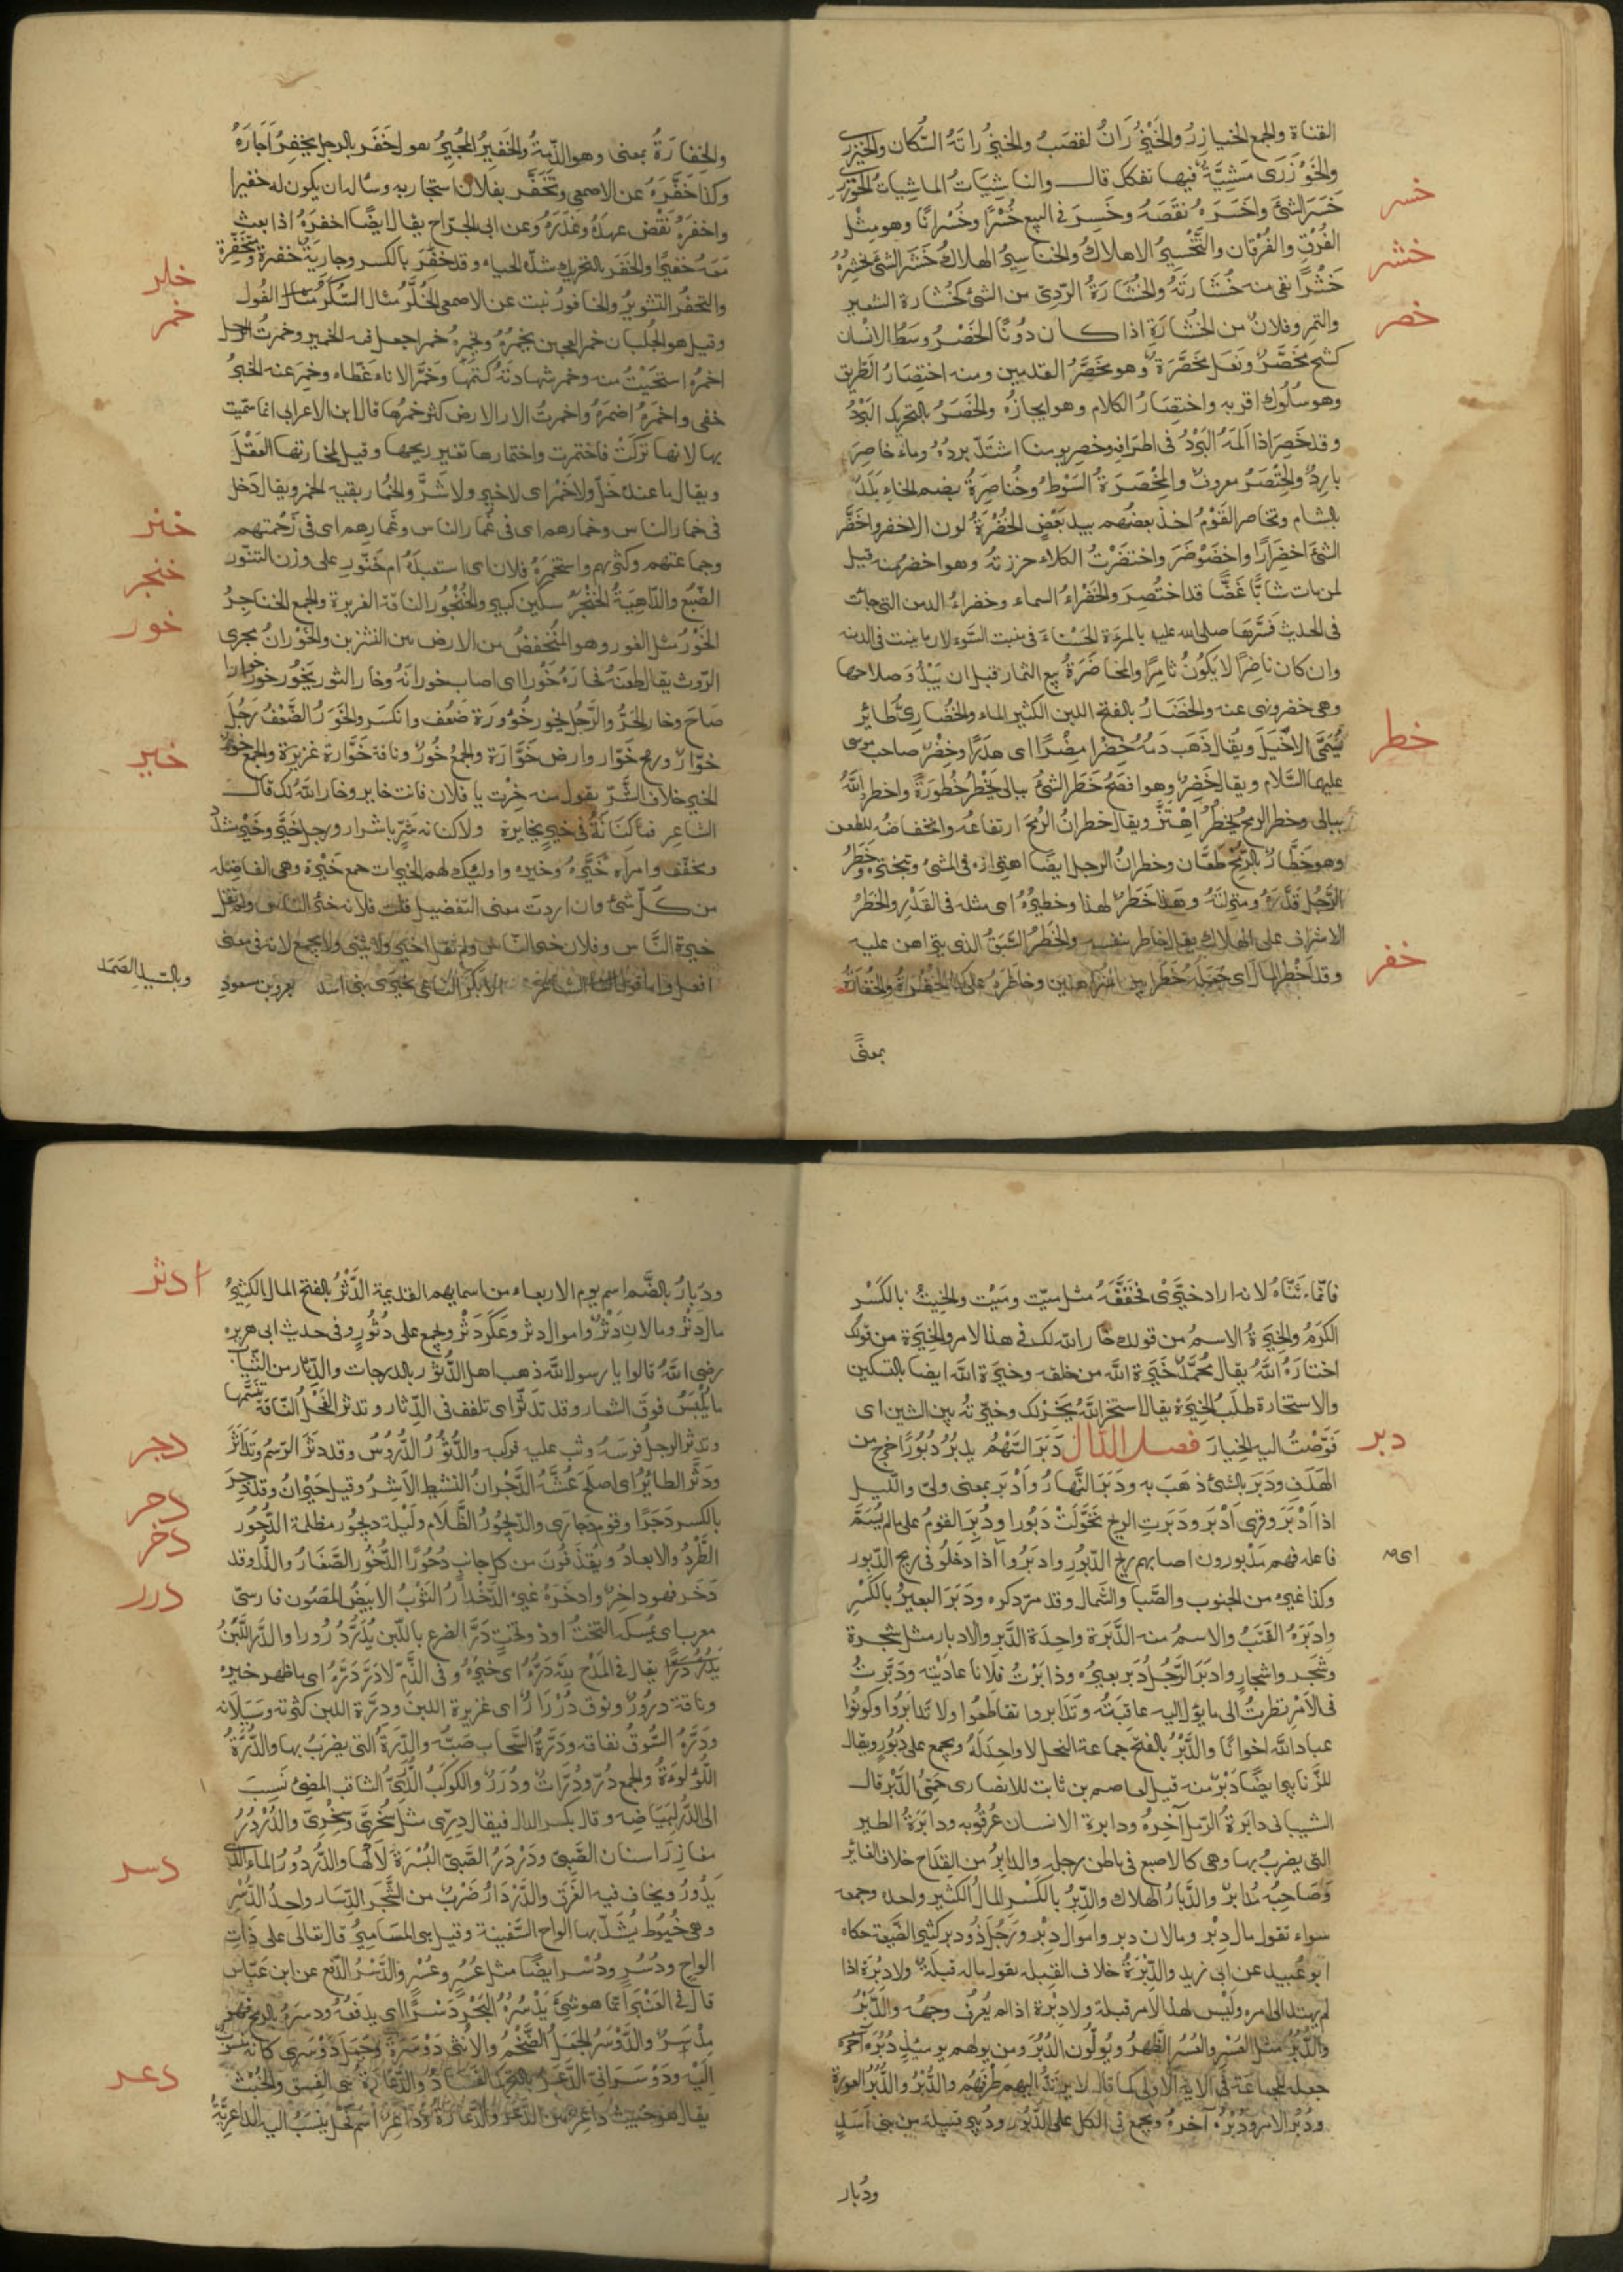 القناة والجمع الخيازر والخَيْزُرَانُ لقصَبُ والخيزُرانَةُ السُّكان والخيزرى
والخَوْزَرَى مَشِيَّةٌ فيها تفكك قال والناشِيَاتُ الماشِيَاتُ الخَوْزَرَى
خسر
خسَرَ الشئَ واخسَرَهُ نقَصَهُ وخَسِرَ في البيع خُسْرًا وخُسْرانًا وهو مثل
الفُرْقِ والفُرْقان والتَّخْسِيرُ الاهلاكُ والخناسِيرُ الهلاكُ خَشَرَ الشئَ يخشِرُهُ
خشر
خَشْرًا نقى منه خُشَارَتَهُ والخُشَارَةُ الرّدِىّ من الشئ كخُشارة الشعير
خصر
والتمر وفلانٌ من الخُشارَةِ اذا كان دُونًا الخَصْرُ وسَطُ الانسْان
كشح مخصَّرٌ ونَعْل مخَصَّرَةٌ وهو مخَصَّرُ القدمين ومنه اختِصَارُ الطّريق
وهو سُلُوك اقربه واختِصَارُ الكلام وهو ايجازُهُ والخَصَرُ بالتحريك البَرْدُ
وقد خَصِرَ اذا آلمَهُ البَرْدُ في اطرافه وخصِر يومنا اشتَدّ بردُهُ وماءٌ خاصِرٌ
بارِدٌ والخِنْصَرُ معروف والمِخْصَرَةُ السَّوْطُ وخُناصِرَةُ بضم الخاءِ بَلَدٌ
بالشام وتخاصر القَوْمُ اخذ بعضُهم بيد بَعْضٍ الخُضْرَةُ لون الاخضر واخضَرَّ
الشئ اخضِرَارًا واخضَوْضَرَ واختضَرْتُ الكلاء جززته وهو اخضرُ منه قيل
لمن مات شابًّا غَضًّا قد اختُضِرَ والخَضْراءُ السماء وخضراءُ الدمن التي جاءت
في الحديث فسَّرَها صلى الله عليه بالمرءة الحَسْنَاءَ في منبت السَّوْء لان ما ينبت في الدمنه
وان كان ناضِرًا لا يكوُنُ ثامِرًا والمخاضَرَةُ بيع الثمار قبل ان يَبْدُوَ صلاحها
وهي خضر ونهى عنه والخَضَارُ بالفتح اللبن الكثير الماء والخُضَارِىُّ طائِر
خطر
يُسَمَّى الاَخْيَلَ ويُقال ذَهَبَ دَمُهُ خِضْرًا مِضْرًا اى هدَرًا وخِضْرٌ صاحب موسى
عليها السَّلام ويقال خَضِرٌ وهو افصَحُ خَطَرَ الشئُ ببالى يَخْطُرُ خُطُورَةً واخطر اللهُ
ببالى وخطر الرمح يَخْطُرُ اهْتَزَّ ويقال خطران الرُّمحِ ارتفاعه وانخفاضه للطعن
وهو خَطَّارٌ بالرُّمْحِ طَعَّان وخطرانُ الرجل ايضًا اهتزازه في المشى وتبختره وخَطَرُ
الرَّجُلِ قَدْرُهُ ومنزلَتُهُ وهذا خَطَرٌ لهذا وخطيرٌ اى مثله في القَدْرِ والخَطَرُ
الاشراف على الهلاك يقال خاطر بنفسه والخَطَرُ السَّبَقُ الذي يتراهن عليه
خفر
وقد اَخْطَر المالَ اى جَعَلَهُ خَطَرًا بين المتراهنين وخاطَرَهُ على كذا الخُفْرَةُ والخُفَارَةُ
بمعنىً
والخِفَارَةُ بمعنى وهو الذِّمةُ والخَفيرُ المُجيرُ تقول خَفَرَ بالرجل يخفِرُ اَجَارَهُ
وكذا خَفَّرَهُ عن الاصمعى وتَخَفَّرَ بفلان استجار به وساله ان يكون له خفيرا
واخفرَهُ نقْض عهدَهُ وغَدَرَهُ وعن ابى الجرّاح يقال ايضًا اخفرَهُ اذا بعث
معهُ خفيرًا والخَفَر بالتحريك شدّة الحياء وقد خَفَرَ بالكسر وجاريَةٌ خفرة ومتخَفِّرَة
خلر
والتخفّرُ التشويرُ والخافورُ نبت عن الاصمعى الخُلَّرُ مثال السُّكّر مثال الفُول
خمر
وقيل هو الجُلبان خمر العجين يخمُرُهُ ويخمِرُهُ خمرا جعل فيه الخمير وخمرتُ الرجل
اخمرُهُ استحَيْتُ منه وخمر شهادته كتمَها وخَمَّر الاناءَ غَطّاه وخمِرَ عنه الخبرُ
خفى واخمَرَهُ اضمرَهُ واخمرتُ الارالارض كثر خمرُها قال ابن الاعرابى انما سمّيت
بها لانها تُرِكَتْ فاختمرت واختمارها تغير ريحها وقيل لمخامرتها العَقْلَ
ويقال ما عنده خَلٌّ ولا خَمْر اى لا خير ولا شَرٌّ والخُمار بقيه الخمر ويقال دَخل
خنر
في خمار الناس وخمارهم اى في غُمار الناس وغَمارِهم اى في زَحْمتهم
وجماعتهم وكثرتهم واستخمَرَهُ فلان اى استعبدَهُ ام خَنّورِ على وزن التنّور
خنجر
الضّبُع والدّاهِيَةُ الخَنْجَرُ سكّين كبير والخُنْجُورُ الناقة الغزيرة والجمع الخناجرُ
خور
الخَوْرُ مثل الغور وهو المُنْخَفضُ من الارض بين النشزين والخَوْرانُ مجرى
الرّوث يقال طعَنَهُ فخارَهُ خَوْرا اى اصاب خورانَهُ وخار الثور يَخُورُ خوارا
صَاحَ وخار الحَرُّ والرَّجُل يخور خُوُورَةً ضعُف وانكسَر والخَوَرُ الضَّعْفُ رَجُلٌ
خوّارٌ ورمح خَوّار وارض خَوّارَة والجمعُ خُورٌ وناقة خَوّارة غزيرَة والجمع خورٌ
خير
الخير خلاف الشَّرّ يقول منه خِرْتَ يا فلان فانت خاير وخار اللّه لك قال
الشاعر فما كِنانَةُ في خيرٍ بخايرة ولا كنانه شرّ باشرار ورجل خَيّر وخَيْر مشدّد
ومخفّف وامراة خيّرة وخيره واوليك لهم الخيرات جمع خَيْرة وهى الفاضله
من كلّ شئ وان اردت معنى التفضيل قلت فلانه خير الناس ولم تقل
خيرة النّاس وفلان خير النّاس ولم تقل اخير ولا يثنى ولا يجمع لانه في معنى
افعل واما قول الشاعر الا بكر الناعى بخيرى بنى اسد بعمرو بن مسعودٍ
وبالسّيدِ الصمَد
فانّما ثَنّاهُ لانه اراد خيّرَىْ فخَفَّفَهُ مثل ميّت ومَيْت والخِيرُ بالكَسْر
الكَرَمُ والخِيرَةُ الاسمُ من قولك خار الله لك في هذا الامر والخِيَرَة من قولك
اختارَهُ اللّهُ يقال محُمَّدٌ خَيَرَةُ اللّه من خلقه وخيرَة اللّه ايضا بالتسكين
والاستخارة طلَبُ الخِيَرَة يقال استخر اللّهَ يَخِرْلك وخيّرتُه بين الشيئين اى
دبر
فَوّضْتُ اليه الخِيارَ فصل الدّال دَبَرَ السَّهْمُ يدبُرُ دُبُورًا خرج من
الهَدَفِ ودَبَرَ بالشئ ذهَبَ به ودَبَرَ النَّهارُ واَدْبَرَ بمعنى ولىّ والّليل
اذا اَدْبَرَ وقرى اَدْبَرَ ودَبَرَتِ الريح تحَوّلَتْ دَبُورا ودُبِرَ القومُ على ما لم يُسَمَّ
اى
فاعله فهم مدْبورون اصابهم ريح الدّبُورِ وادبَرُوا اذا دخلُو في ريح الدّبور
وكذا غيره من الجنوب والصَّبا والشَّمال وقد مرّ ذكره ودَبَرَ البعيرُ بالكَسْرِ
وادبَرَهُ القَتَبُ والاسمُ منه الدَّبَرَة واحِدَة الدَّبَرِ والادبار مثل شجَرة
وشجَر واشجارٍ وادبَرَ الرَّجُلُ دَبِرَ بعيرُه ودابَرْتُ فلانا عاديته ودَبَّرتُ
في الامْرِ نظرتُ الى ما يؤل اليه عاقبَتُه وتَدابروا تقاطَعُوا ولا تَدابَرُوا وكونُوا
عباد اللّه اخوانًا والدَّبْرُ بالفتح جماعة النحل لا واحِدَ لَهُ ويجمع على دُبُور ويقال
للزّنابير ايضًا دَبْرٌ منه قيل لعاصم بن ثابت الانصارى حَمِىُّ الدَّبْرِ قال
الشيبانى دابَرةُ الرّمل آخِرهُ ودابرة الانسان عُرقُوبه ودابَرَةُ الطير
التى يضرِبُ بها وهى كالاصبع في باطن رجله والدابِرُ من القِداح خلاف الفائز
وَصَاحِبُهُ مُدابِرٌ والدَّبارُ الهلاك والدِّبْرُ بالكَسْرِ المالُ الكثير واحده وجمعه
سواء تقول مال دِبْر ومالان دبر واموال دِبْر ورَجُل ذو دبر كثير الضَّيعَة حكاه
ابو عُبيد عن ابى زيد والدِّبْرَةُ خلاف القِبله يقول ماله قبلَة ولا دِبْرَة اذا
لم يهتد الى امره ولَيْسَ لهذا الامر قبلة ولا دِبْرَة اذا لم يُعْرَف وجهه والدُّبْرُ
والدُّبُرُ مثل العُسْرِ والعُسُرِ الظَّهرُ ويُولُّون الدُّبُرَ ومن يولهم يومئذٍ دُبُرَهُ
جعله للجماعَة في الاية الاولى كما قال لا يرتدُّ اليهم طَرْفُهُم والدُّبْرُ والدُّبُرُ العورة
ودُبُرُ الامر ودُبْرُهُ آخرهُ ويجمع في الكل على الدُّبُر ودُبير قبيلة من بنى اسَدٍ
ودُبار
ودُبارُ بالضَّم اسم يوم الاربعاء من اسمايهم القديمة الدَّثْرُ بالفتح المال الكثيرُ
دثر
مال دَثْر ومالان دَثْرٌ واموال دثر وعَكَر دَثْرٌ ويجمع على دُثُورٍ وفي حدث ابى هريره
رضى اللّهُ قالوا يا رسول اللّه ذهب اهل الدُّثُورِ بالدرجات والدِّثار من الثياب
ما يُلْبَسُ فوقَ الشعار وقد تدثّر اى تلفف في الدِّثار وتدثر الفَحْلُ النّاقةَ تسَنَّمها
دجر
وتدثر الرجل فرسَهُ وثب عليه فركبه والدُّثُورُ الدُّرُوسُ وقد دثر الرّسمُ وتَدَاثَرَ
ودَثَّرَ الطائرُ اى اصلَحَ عُشَّهُ الدَّجْرانُ النشيط الاشِرُ وقيل حَيْرانُ وقد دجِرَ
دحر
بالكسر دَجَرًا وقوم دَجارَى والدّيجُورُ الظَّلام ولَيْلة ديجُور مظلمة الدُّحُور
دخر
الطَّرْدُ والابعادُ ويُقذَفُونَ من كل جانبٍ دُحُورًا الدُّخُورُ الصَّغارُ والذّلُ وقد
درر
دَخَر فهو داخِرٌ وادخَرَهُ غيره الدَّخْدارُ الثّوْبُ الابيضُ المصُون فارسىّ
معرب اى يُمسكه التختُ اوذو تختٍ دَرَّ الضرع باللّبن يدُرُّ دُرُورا والدَّرُّ اللَّبَنُ
يدُرُّ دَرًّا يقال في المدْحِ للّه دَرُّهُ اى خيرُهُ وفي الذّمّ لا دَرَّ دَرُّهُ اى ما ظهر خايره
وناقة درُورٌ ونوق دُرَّارٌ اى غزيرة اللبن ودِرَّة اللبن كثرته وسَيَلانه
ودِرَّةُ السُّوقُ نفاقه ودَرَّةُ السَّحابِ صَبُّه والدِّرَةُ التى يضرَبُ بها والدُّرَّةُ
اللّؤلؤةُ والجمع دُرّ ودُرّاتٌ ودُرَرٌ والكوكَبُ الدُّرِّىّ الثاقب المضئُ نُسِبَ
الى الدُّرِّ لبَيَاضِه وقال بكسر الدال فيقال دِرِّىّ مثل سُخْرِىّ وسِخْرِىّ والدُّرْدُرُ
دسر
مغارِزُ اسنان الصَّبِىّ ودَرْدَرُ الصَّبِىّ البُسْرَةَ لاكَها والدُّرْدُورُ الماء الذى
يَدُورُ ويخاف فيه الغَرَق والدَّرْدارُ ضَرْبٌ من الشَّجَر الدِّسَار واحِدُ الدُّسُرِ
وهى خُيُوط يُشَدُّ بها الواح السَّفينة وقيل هى المسَاميرُ قال تعالى على ذَاتِ
الواحٍ ودُسُرٍ ودُسْر ايضًا مثل عُسُر وعُسْر والدَّسْرُ الدّفع عن ابن عَبّاسٍ
قال في العَنْبر انما هو شئ يَدْسُرُهُ البَحْر دَسْرًا اى يدفَعُهُ ودسَرَهُ بالرمح فهو
مِدْسَرٌ والدَّوْسَرُ الجَمَلُ الضَّخْمُ والانثى دَوْسَرَة وجَمَلَ دَوْسَرِى كانه منسوب
دعر
الَيْه ودَوْسَرانىّ الدَّعَرُ بالتحريك الفَسَادُ والدَّعارَةُ هى الفِسق والخُبْثُ
يقال هو خبيث داعِرٌ بين الدَّعَرِ والدَّعارَة وداعِرٌ اسم فحل ينسَبُ اليه الداعِريَّةُ